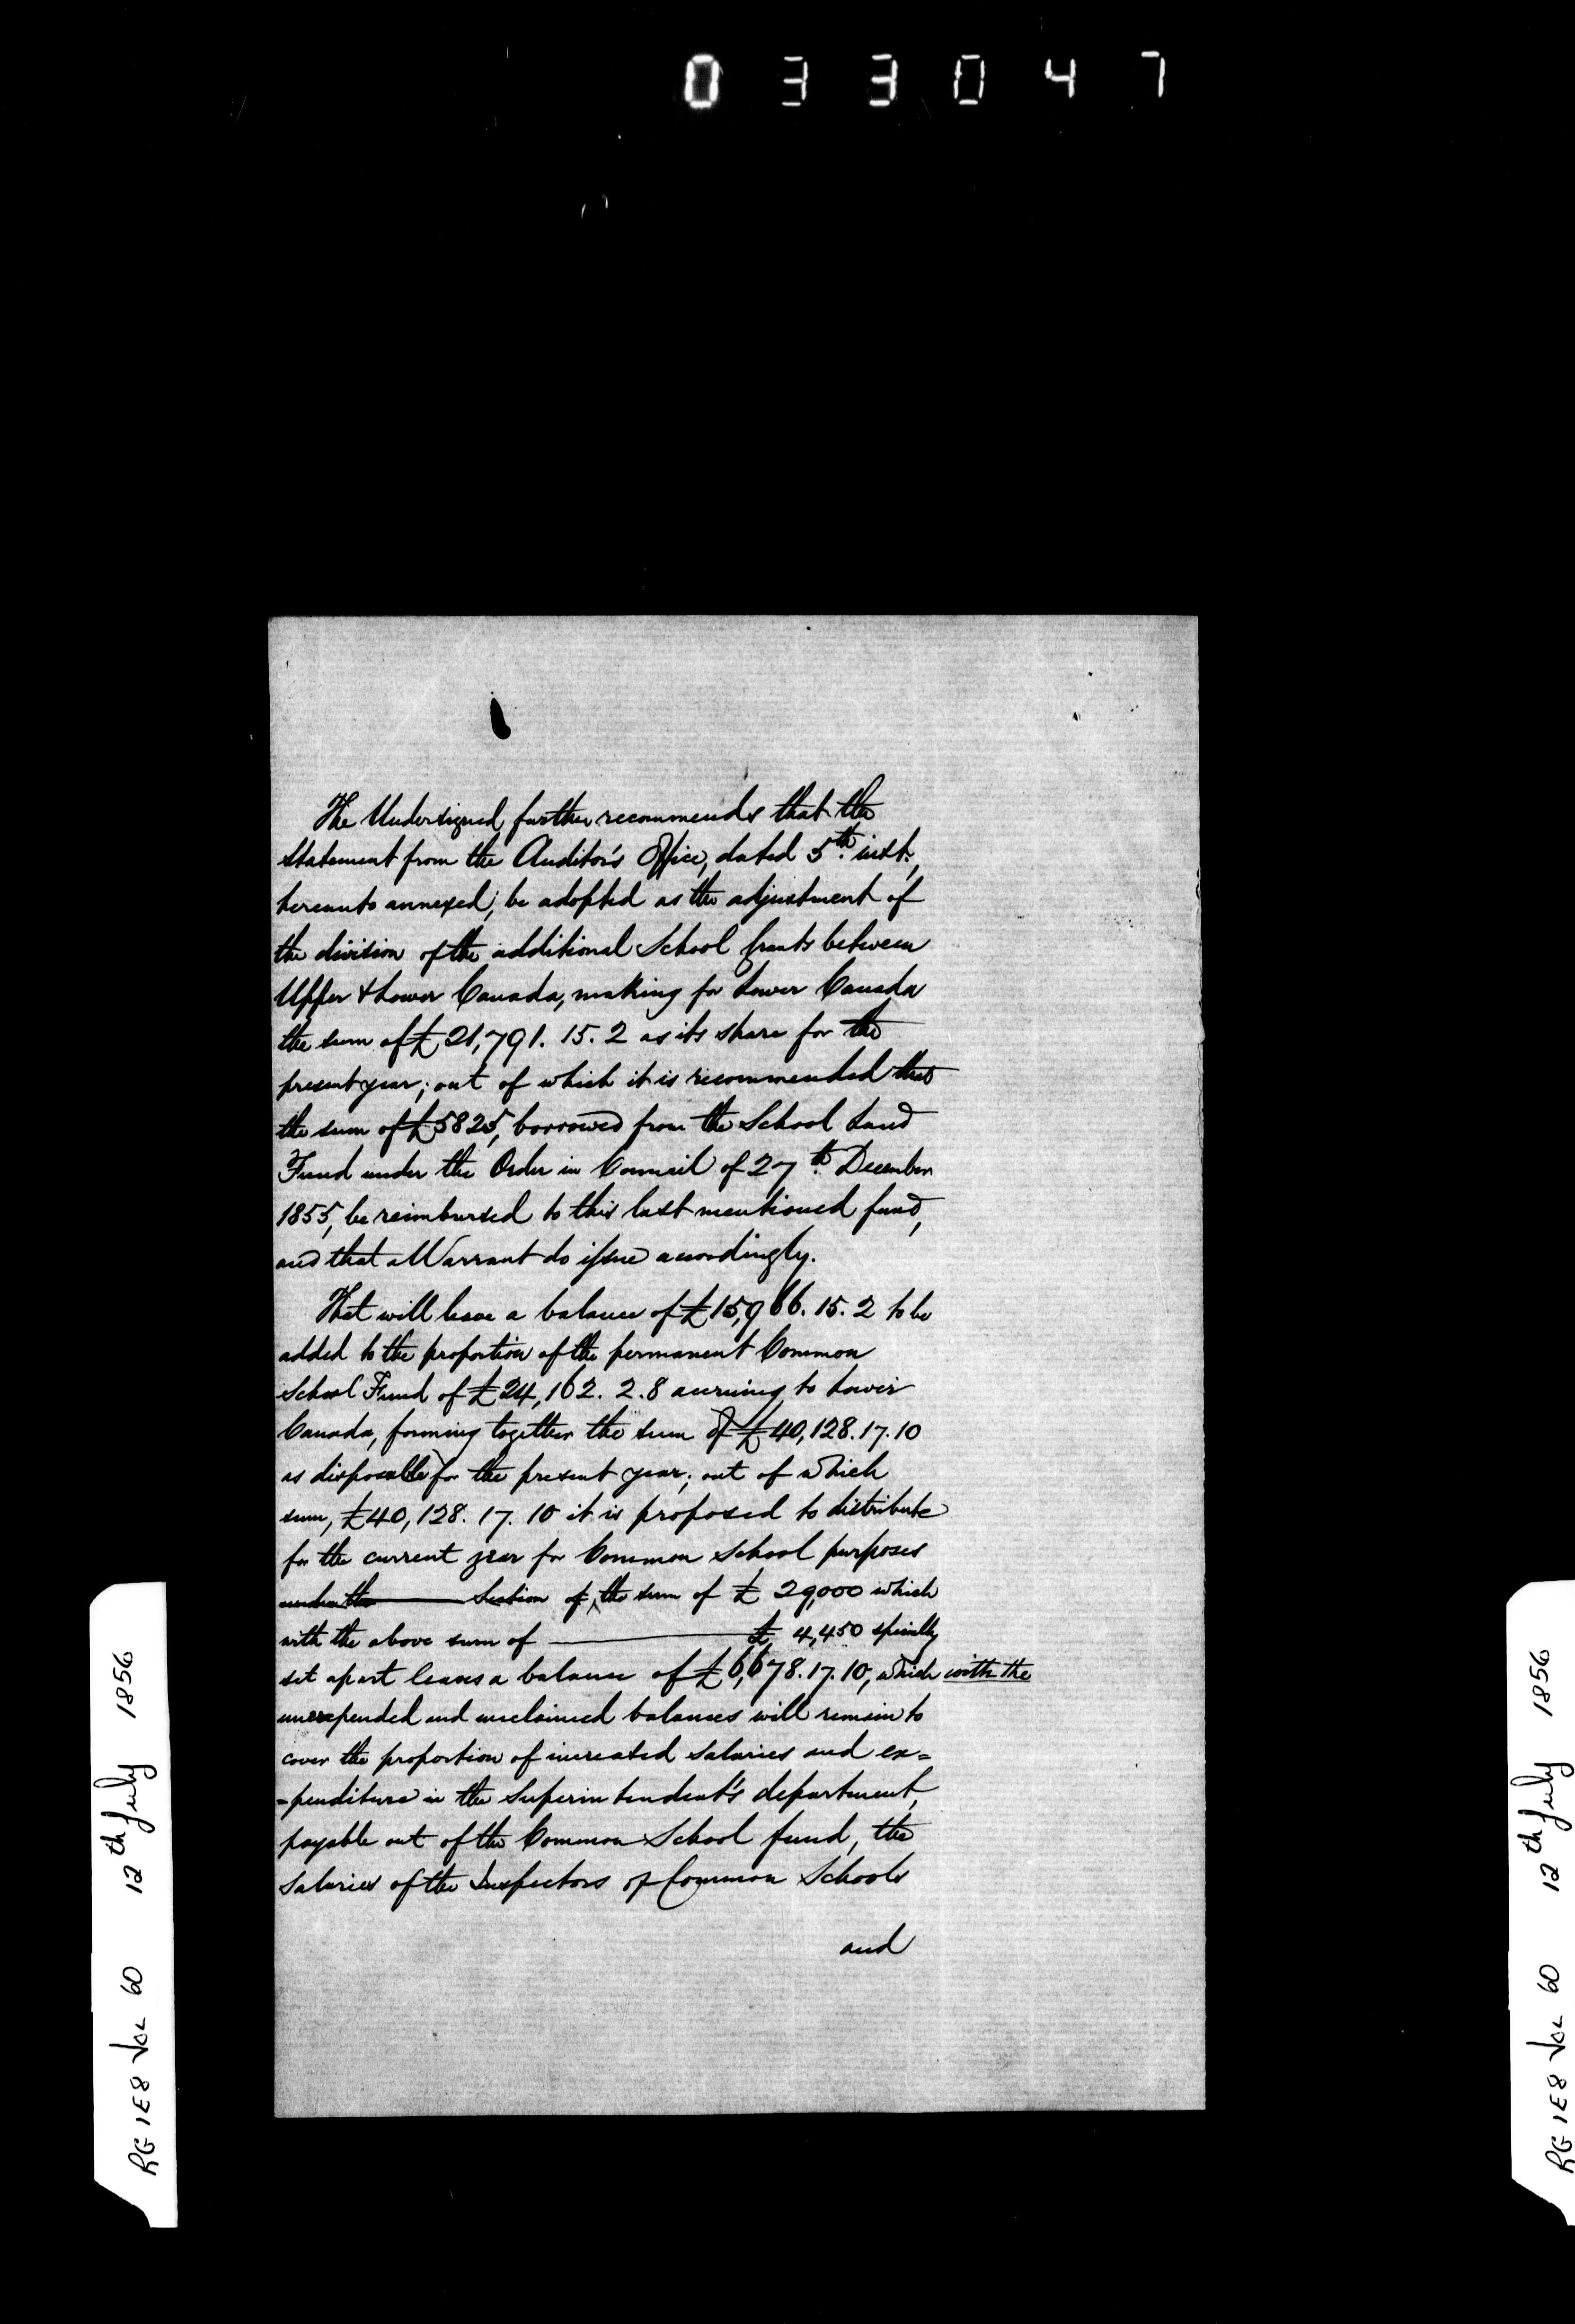 033047
The Undersigned further recommends that the
statement from the Auditor's Office, dated 5th. inst.,
hereunto annexed, be adopted as the adjustment of
the division of the additional School Grants between
Upper & Lower Canada, making for Lower Canada
the sum of £21,791. 15. 2 as its share for the
present year; out of which it is recommended that
the sum of £5825, borrowed from the School Land
Fund under the Order in Council of 27th. December
1855, be reimbursed to this last mentioned fund,
and that a Warrant do issue accordingly.
That will leave a balance of £15,966. 15. 2 to be
added to the proportion of the permanent Common
School Fund of £24,162. 2. 8 accruing to Lower
Canada, forming together the sum of £40,128. 17. 10
as disposable for the present year; out of which
sum, £40,128. 17. 10 it is proposed to distribute
for the current year for Common School purposes
under the Section of the sum of £ 29,000 which
with the above sum of £ 4,450 specially
set apart leaves a balance of £6,678. 17. 10, which with the
unexpended and unclaimed balances will remain to
cover the proportion of increased salaries and ex=
=penditure in the Superintendent's department,
payable out of the Common School fund, the
salaries of the Inspectors of Common Schools
and
RG 1E8 Vol 60 12th July 1856
RG 1E8 Vol 60 12th July 1856